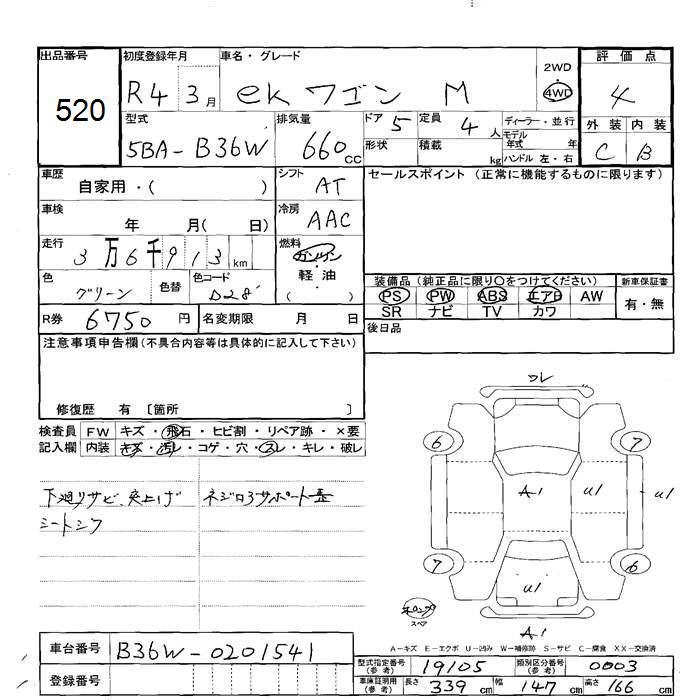 出品番号 初度登録年月 車名・グレード 2WD 評価点
520 R4 3月 ekワゴン M ・ 4WD 4
型式 排気量 ドア 5 定員 4人 ディーラー・並行 外装 内装
5BA-B36W 660cc 形状 積載 kg モデル年式 年 C B
ハンドル 左・右
車歴 自家用・( ) シフト AT セールスポイント(正常に機能するものに限ります)
車検 年 月( 日) 冷房 AAC
走行 3万6千913km 燃料 ガソリン
色 グリーン 色替 色コード D28 ・軽・油 ( )
装備品(純正品に限り〇をつけてください) 新車保証書
PS PW ABS エアB AW 有・無
SR ナビ TV カワ
R券 6750円 名変期限 月 日 後日品
注意事項申告欄(不具合内容等は具体的に記入して下さい)
修復歴 有 〔箇所 〕
検査員 FW キズ・飛石・ヒビ割・リペア跡・×要
記入欄 内装 キズ・汚レ・コゲ・穴・スレ・キレ・破レ
下廻リサビ、突上げ
シートシワ
ワレ
6 7
A1 U1 U1
7 6
U1
スペア
A1
A-キズ E-エクボ U-凹み W-補修跡 S-サビ C-腐食 XX-交換済
車台番号 B36W-0201541
登録番号
型式指定番号(参考) 19105 類別区分番号(参考) 0003
車庫証明用(参考) 長さ 339cm 幅 147cm 高さ 166cm